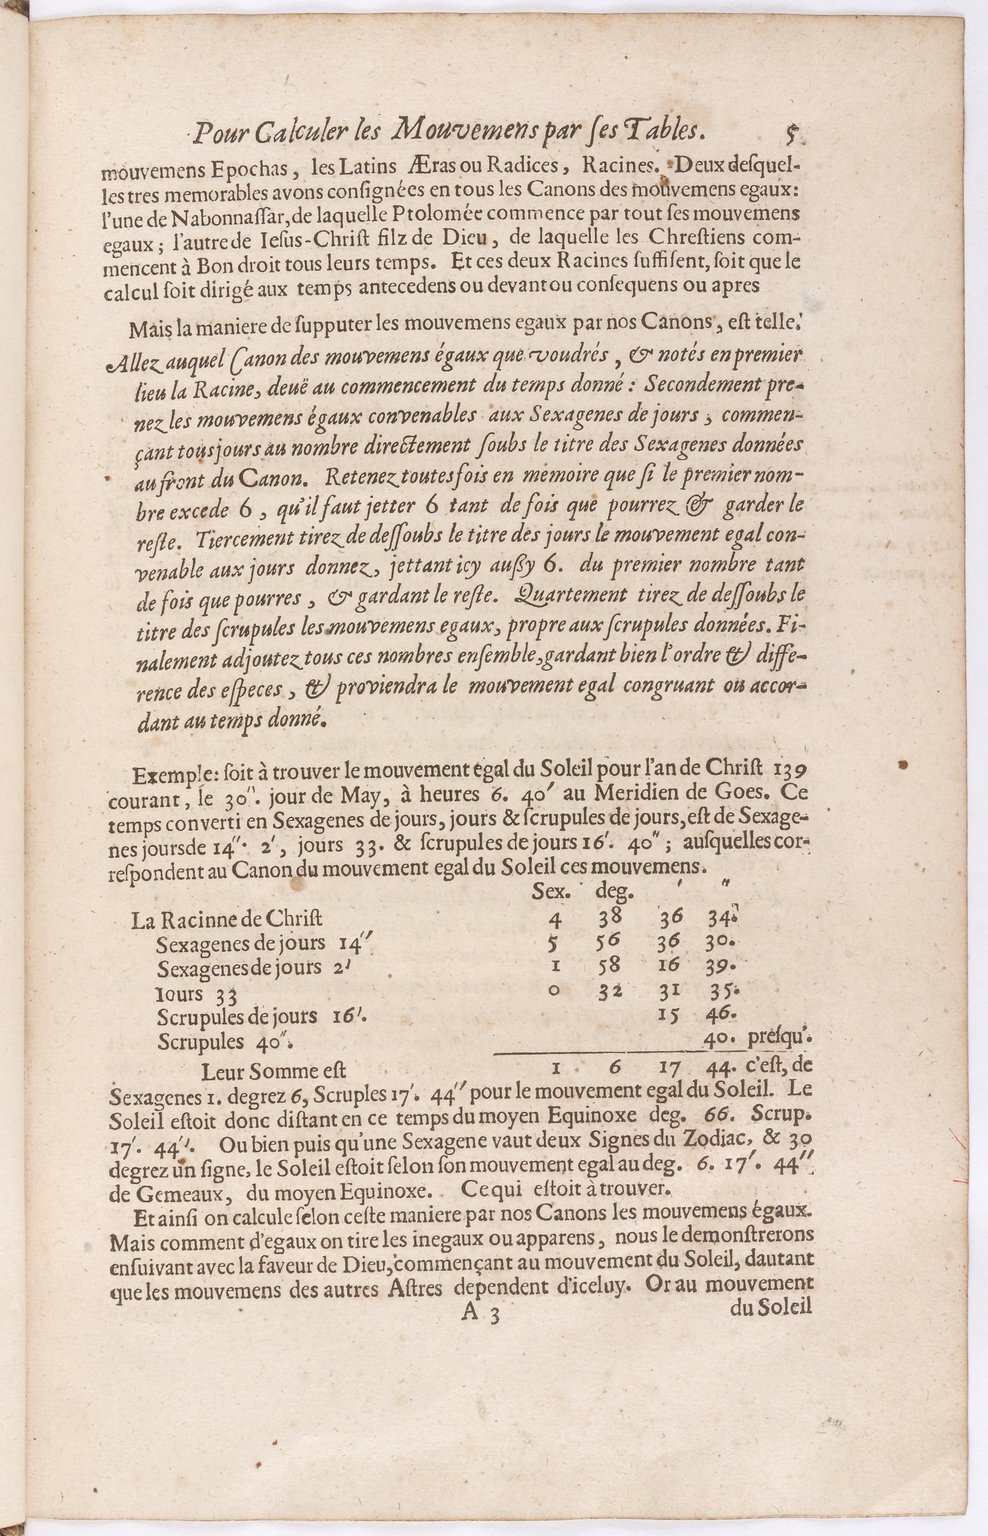 Pour Calculer les Mouvemens par ſes Tables. 5
mouvemens Epochas, les Latins Æras ou Radices, Racines. Deux deſquel-
les tres memorables avons conſignées en tous les Canons des mouvemens egaux:
l'une de Nabonnaſſar, de laquelle Ptolomée commence par tout ſes mouvemens
egaux; l'autre de Ieſus-Chriſt filz de Dieu, de laquelle les Chreſtiens com-
mencent à Bon droit tous leurs temps. Et ces deux Racines ſuffiſent, ſoit que le
calcul ſoit dirigé aux temps antecedens ou devant ou conſequens ou apres
Mais la maniere de ſupputer les mouvemens egaux par nos Canons, eſt telle.
Allez auquel Canon des mouvemens égaux que voudrés, & notés en premier
lieu la Racine, deuë au commencement du temps donné: Secondement pre-
nez les mouvemens égaux convenables aux Sexagenes de jours, commen-
çant tousjours au nombre directement ſoubs le titre des Sexagenes données
au front du Canon. Retenez toutesfois en memoire que ſi le premier nom-
bre excede 6, qu'il faut jetter 6 tant de fois que pourrez & garder le
reſte. Tiercement tirez de deſſoubs le titre des jours le mouvement egal con-
venable aux jours donnez, jettant icy außy 6. du premier nombre tant
de fois que pourres, & gardant le reſte. Quartement tirez de deſſoubs le
titre des ſcrupules les mouvemens egaux, propre aux ſcrupules données. Fi-
nalement adjoutez tous ces nombres enſemble, gardant bien l'ordre & diffe-
rence des eſpeces, & proviendra le mouvement egal congruant ou accor-
dant au temps donné.
Exemple: ſoit à trouver le mouvement egal du Soleil pour l'an de Chriſt 139
courant, le 30''. jour de May, à heures 6. 40' au Meridien de Goes. Ce
temps converti en Sexagenes de jours, jours & ſcrupules de jours, eſt de Sexage-
nes joursde 14''. 2', jours 33. & ſcrupules de jours 16'. 40''; auſquelles cor-
reſpondent au Canon du mouvement egal du Soleil ces mouvemens.
Sex. deg. ' ''
La Racinne de Chriſt 4 38 36 34.
Sexagenes de jours 14'' 5 56 36 30.
Sexagenes de jours 2' 1 58 16 39.
Iours 33 0 32 31 35.
Scrupules de jours 16'. 15 46.
Scrupules 40''. 40. preſqu'.
Leur Somme eſt 1 6 17 44. c'eſt, de
Sexagenes 1. degrez 6, Scruples 17'. 44'' pour le mouvement egal du Soleil. Le
Soleil eſtoit donc diſtant en ce temps du moyen Equinoxe deg. 66. Scrup.
17'. 44''. Ou bien puis qu'une Sexagene vaut deux Signes du Zodiac, & 30
degrez un ſigne, le Soleil eſtoit ſelon ſon mouvement egal au deg. 6. 17'. 44''.
de Gemeaux, du moyen Equinoxe. Ce qui eſtoit à trouver.
Et ainſi on calcule ſelon ceſte maniere par nos Canons les mouvemens égaux.
Mais comment d'egaux on tire les inegaux ou apparens, nous le demonſtrerons
enſuivant avec la faveur de Dieu, commençant au mouvement du Soleil, dautant
que les mouvemens des autres Aſtres dependent d'iceluy. Or au mouvement
A 3 du Soleil